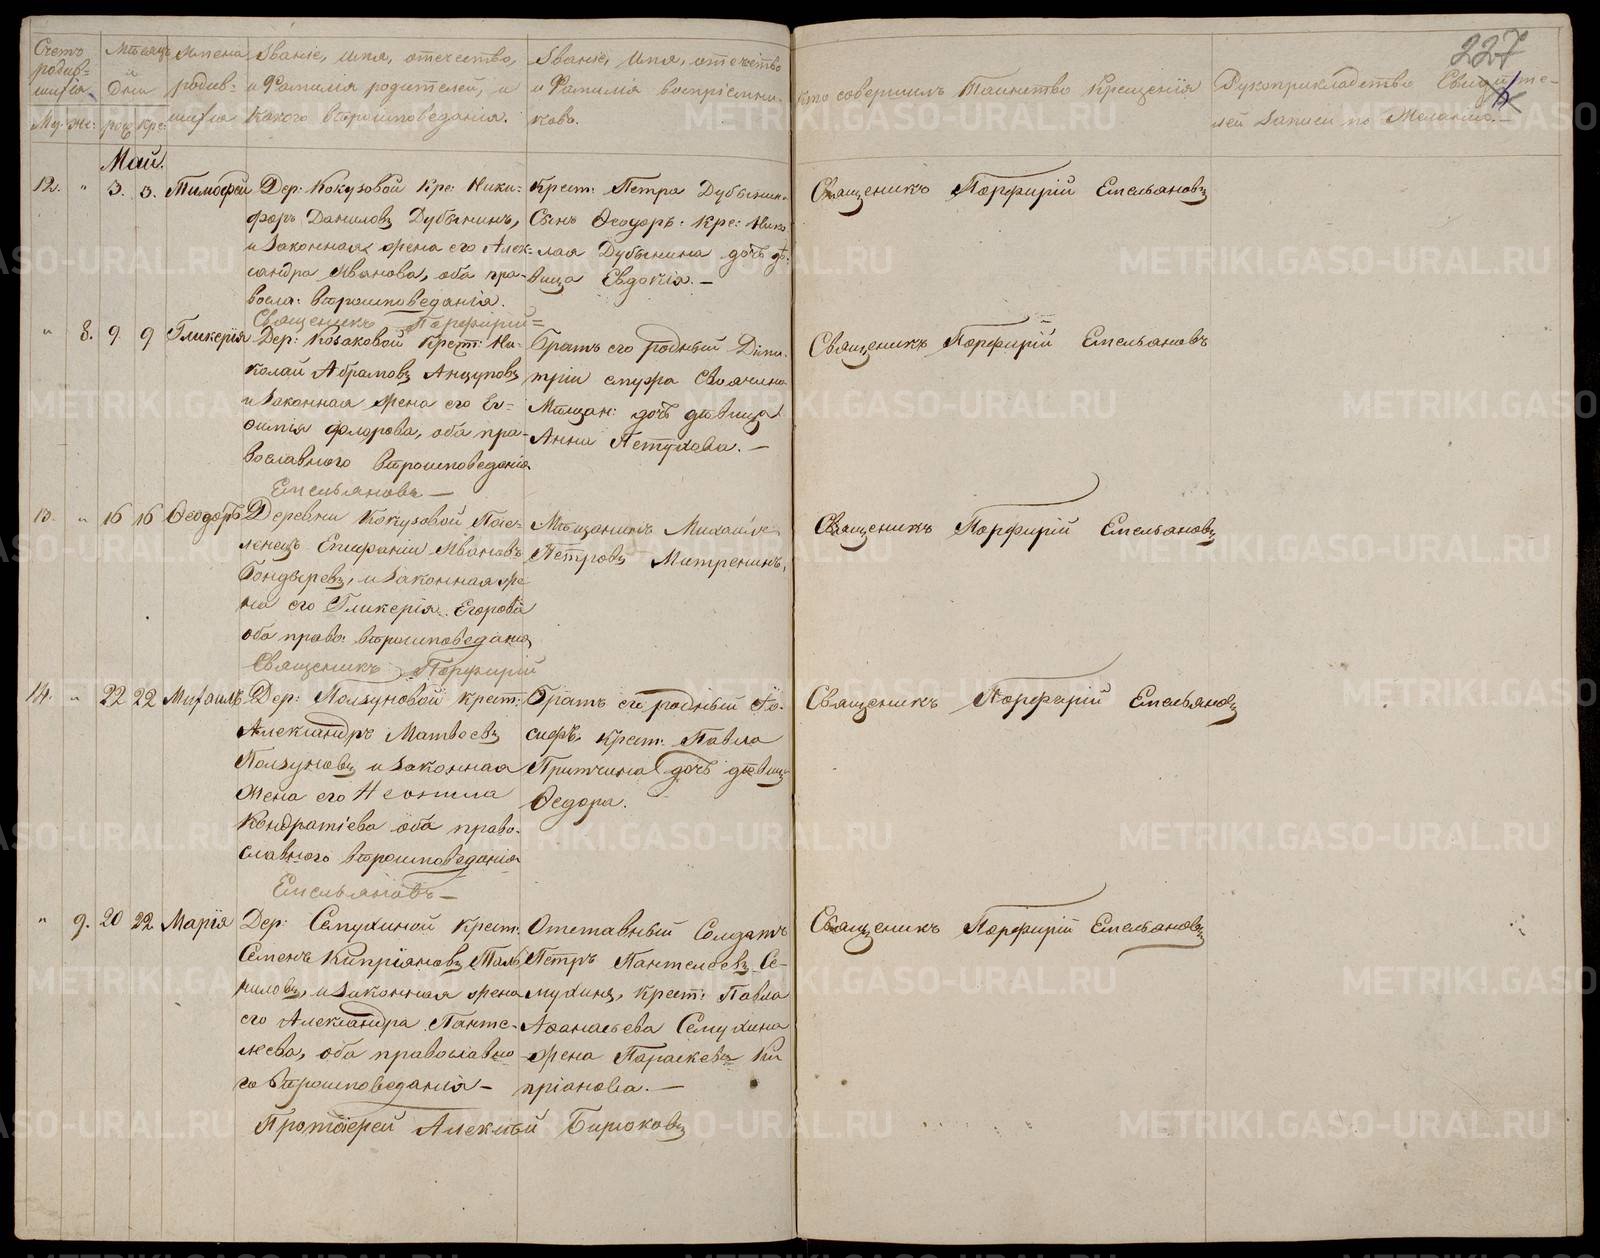 227
Счетъ родив-шихся
Му: Же:
Мѣсяцъ и Дни
рож: Кре:
Имена родив-шихся
Званіе, имя, отечество, и Фамилія родителей, и какого вѣроисповеданія.
Званіе, имя, отечество и Фамилія воспріемни-ковъ.
Кто совершилъ Таинство Крещенія
Рукоприкладство Свидѣте-лей записи по желанію.—
Май.
12. " 3. 3. Тимофей
Дер: Кокузовой Кре: Ники-
форъ Даниловъ Дубынинъ,
и законная жена его Алек-
сандра Иванова, оба пра-
восла: вѣроисповеданія.
Крест: Петра Дубынин-
Сынъ Ѳеодоръ. Кре: Нико
лая Дубынина дочь дѣ-
вица Евдокія.—
Священикъ Порфирій Емельяновъ
Священикъ Порфирій=
" 8. 9. 9 Гликерія
Дер: Козаковой Крест: Ни-
колай Абрамовъ Анцуповъ
и законная жена его Ев-
фимья Флорова, оба пра-
вославного вѣроисповеданія
Братъ его родный Дими-
трій
Мѣщан: дочь дѣвица
Анна Петухова.—
Священикъ Порфирій Емельяновъ
Емельяновъ—
13. " 16 16 Ѳеодоръ
Деревни Кокузовой Посе-
ленецъ Епифаній Ивановъ
Бондыревъ, и законная же
на его Гликерія Егорова
оба право: вѣроисповеданія
Мѣщанинъ Михаилъ
Петровъ Митренинъ,
Священикъ Порфирій Емельяновъ
Священикъ Порфирій
14. " 22 22 Михаилъ
Дер: Ползуновой Крест:
Александръ Матвеевъ
Ползуновъ и законная
жена его Неонила
Кондратіева оба право-
славного вѣроисповеданія
Братъ его родный Іо-
сифъ. Крест: Павла
Притчина дочь дѣвица
Ѳедора.
Священикъ Порфирій Емельяновъ
Емельяновъ—
" 9. 20 22 Марія
Дер: Семухиной Крест:
Семенъ Кипріяновъ
ниловъ, и законная жена
его Александра Панте-
леева, оба православно
го вѣроисповеданія—
Отставный Солдатъ
Петръ Пантелеевъ Се-
мухинъ, Крест: Павла
Афанасьева Семухина
жена Параскева Ки
пріанова.—
Священикъ Порфирій Емельяновъ
Протоіерей Алексѣй Бирюковъ
METRIKI.GASO-URAL.RU